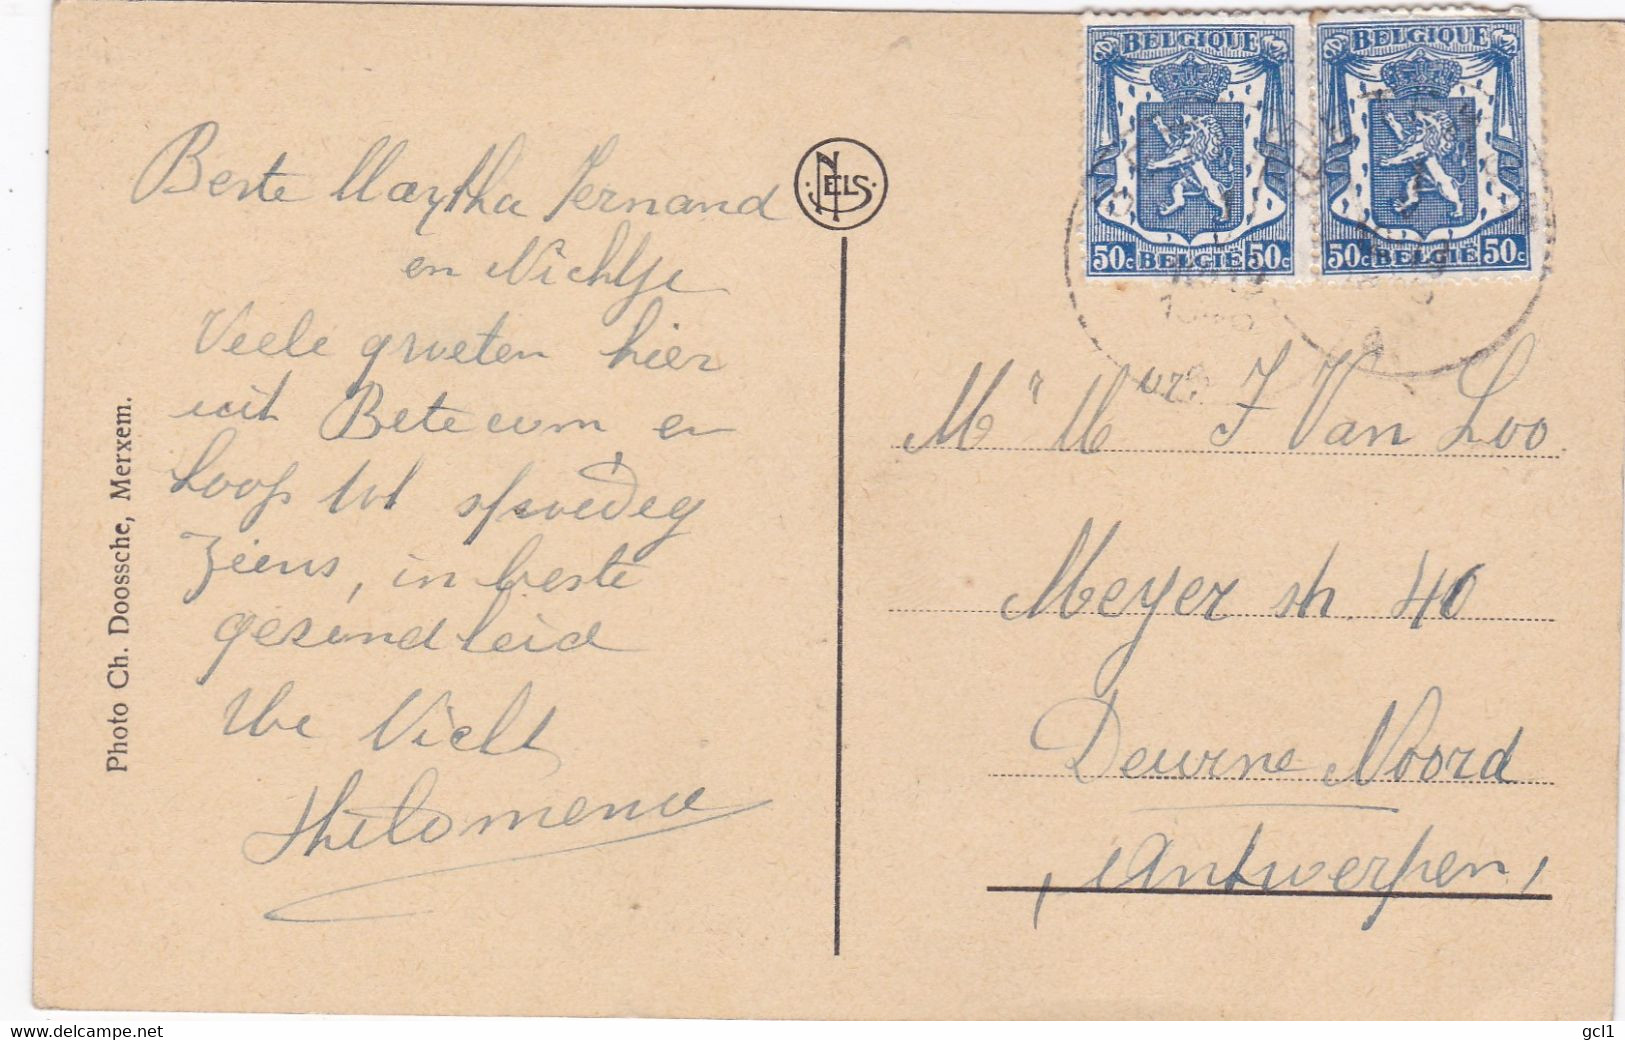 Beste Maytha Fernand
en Nichtje
Veele groeten hier
uit Betecom en
hoop tot spoedeg
ziens, in beste
gezondheid
Uwe Nicht
Philomena
Photo Ch. Doossche, Merxem.
NELS
BELGIQUE
50c BELGIË 50c
BELGIQUE
50c BELGIË 50c
Mr Mvr. F Van Loo
Meyer str. 40
Deurne Noord
Antwerpen
www.delcampe.net
gcl1